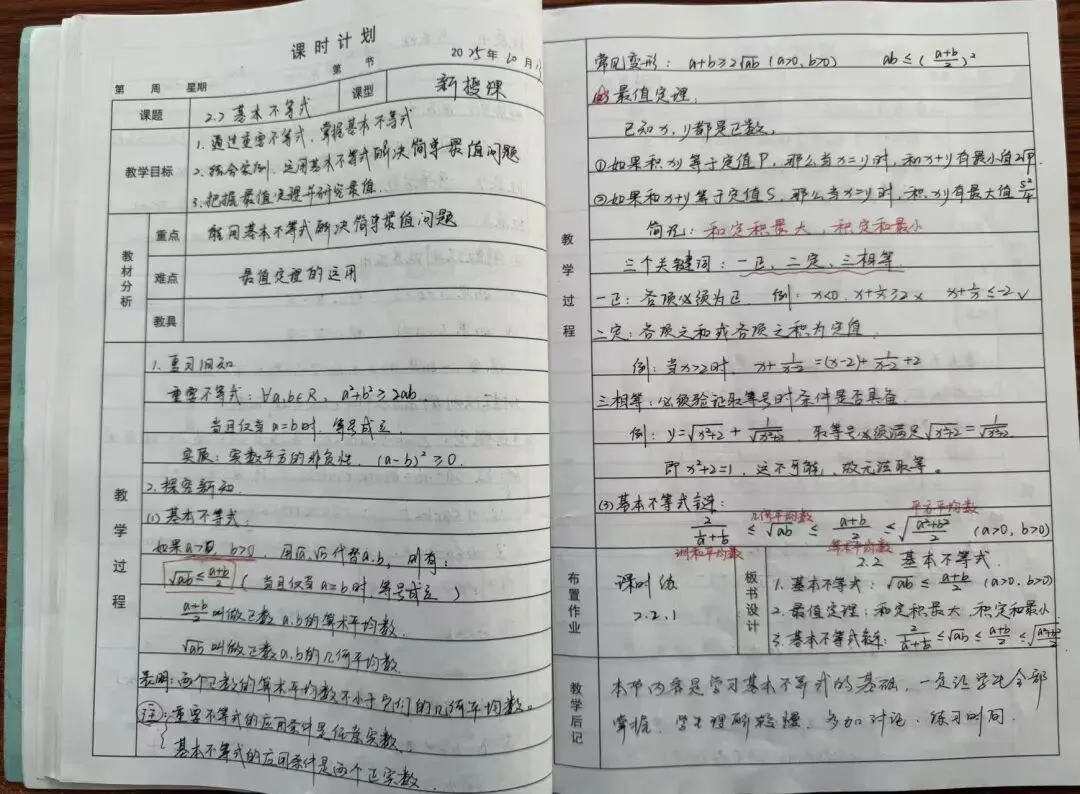 课时计划
2025年10月
第 周 星期 第 节
课型 新授课
课题 2.2 基本不等式
教学目标
1. 通过重要不等式,掌握基本不等式
2. 结合实例,运用基本不等式解决简单最值问题
3. 把握最值定理并研究最值.
教材分析
重点 能用基本不等式解决简单最值问题
难点 最值定理的运用
教具
教学过程
1. 复习旧知
重要不等式:∀a,b∈R, a²+b²≥2ab
当且仅当a=b时,等号成立.
实质:实数平方的非负性. (a-b)²≥0.
2. 探究新知.
(1) 基本不等式:
如果a>0, b>0, 用√a,√b代替a,b, 则有:
√ab≤(a+b)/2 (当且仅当a=b时,等号成立)
(a+b)/2叫做正数a,b的算术平均数.
√ab叫做正数a,b的几何平均数.
表明:两个正数的算术平均数不小于它们的几何平均数。
注:重要不等式的应用条件是任意实数
基本不等式的应用条件是两个正实数.
教学过程
常见变形: a+b≥2√ab (a>0,b>0) ab≤((a+b)/2)²
最值定理.
已知x,y都是正数.
①如果积xy等于定值P, 那么当x=y时,和x+y有最小值2√P.
②如果和x+y等于定值S, 那么当x=y时,积xy有最大值S²/4
简记:和定积最大,积定和最小
三个关键词:一正、二定、三相等.
一正:各项必须为正. 例:x<0. x+1/x≥2 × x+1/x≤-2 √
二定:各项之和或各项之积为定值.
例:当x>2时, x+1/(x-2)=(x-2)+1/(x-2)+2
三相等:必须验证取等号时条件是否具备.
例:y=√(x²+2)+1/√(x²+2). 取等号必须满足√(x²+2)=1/√(x²+2).
即x²+2=1, 这不可能,故无法取等。
(3)基本不等式链:
几何平均数 平方平均数
2/(1/a+1/b)≤√ab≤(a+b)/2≤√((a²+b²)/2) (a>0,b>0)
调和平均数 算术平均数
布置作业
课时练
2.2.1
板书设计
2.2 基本不等式.
1. 基本不等式:√ab≤(a+b)/2 (a>0,b>0)
2. 最值定理:和定积最大,积定和最小.
3. 基本不等式链:2/(1/a+1/b)≤√ab≤(a+b)/2≤√((a²+b²)/2)
教学后记
本节内容是学习基本不等式的基础,一定让学生全部
掌握. 学生理解较慢. 多加讨论、练习时间.